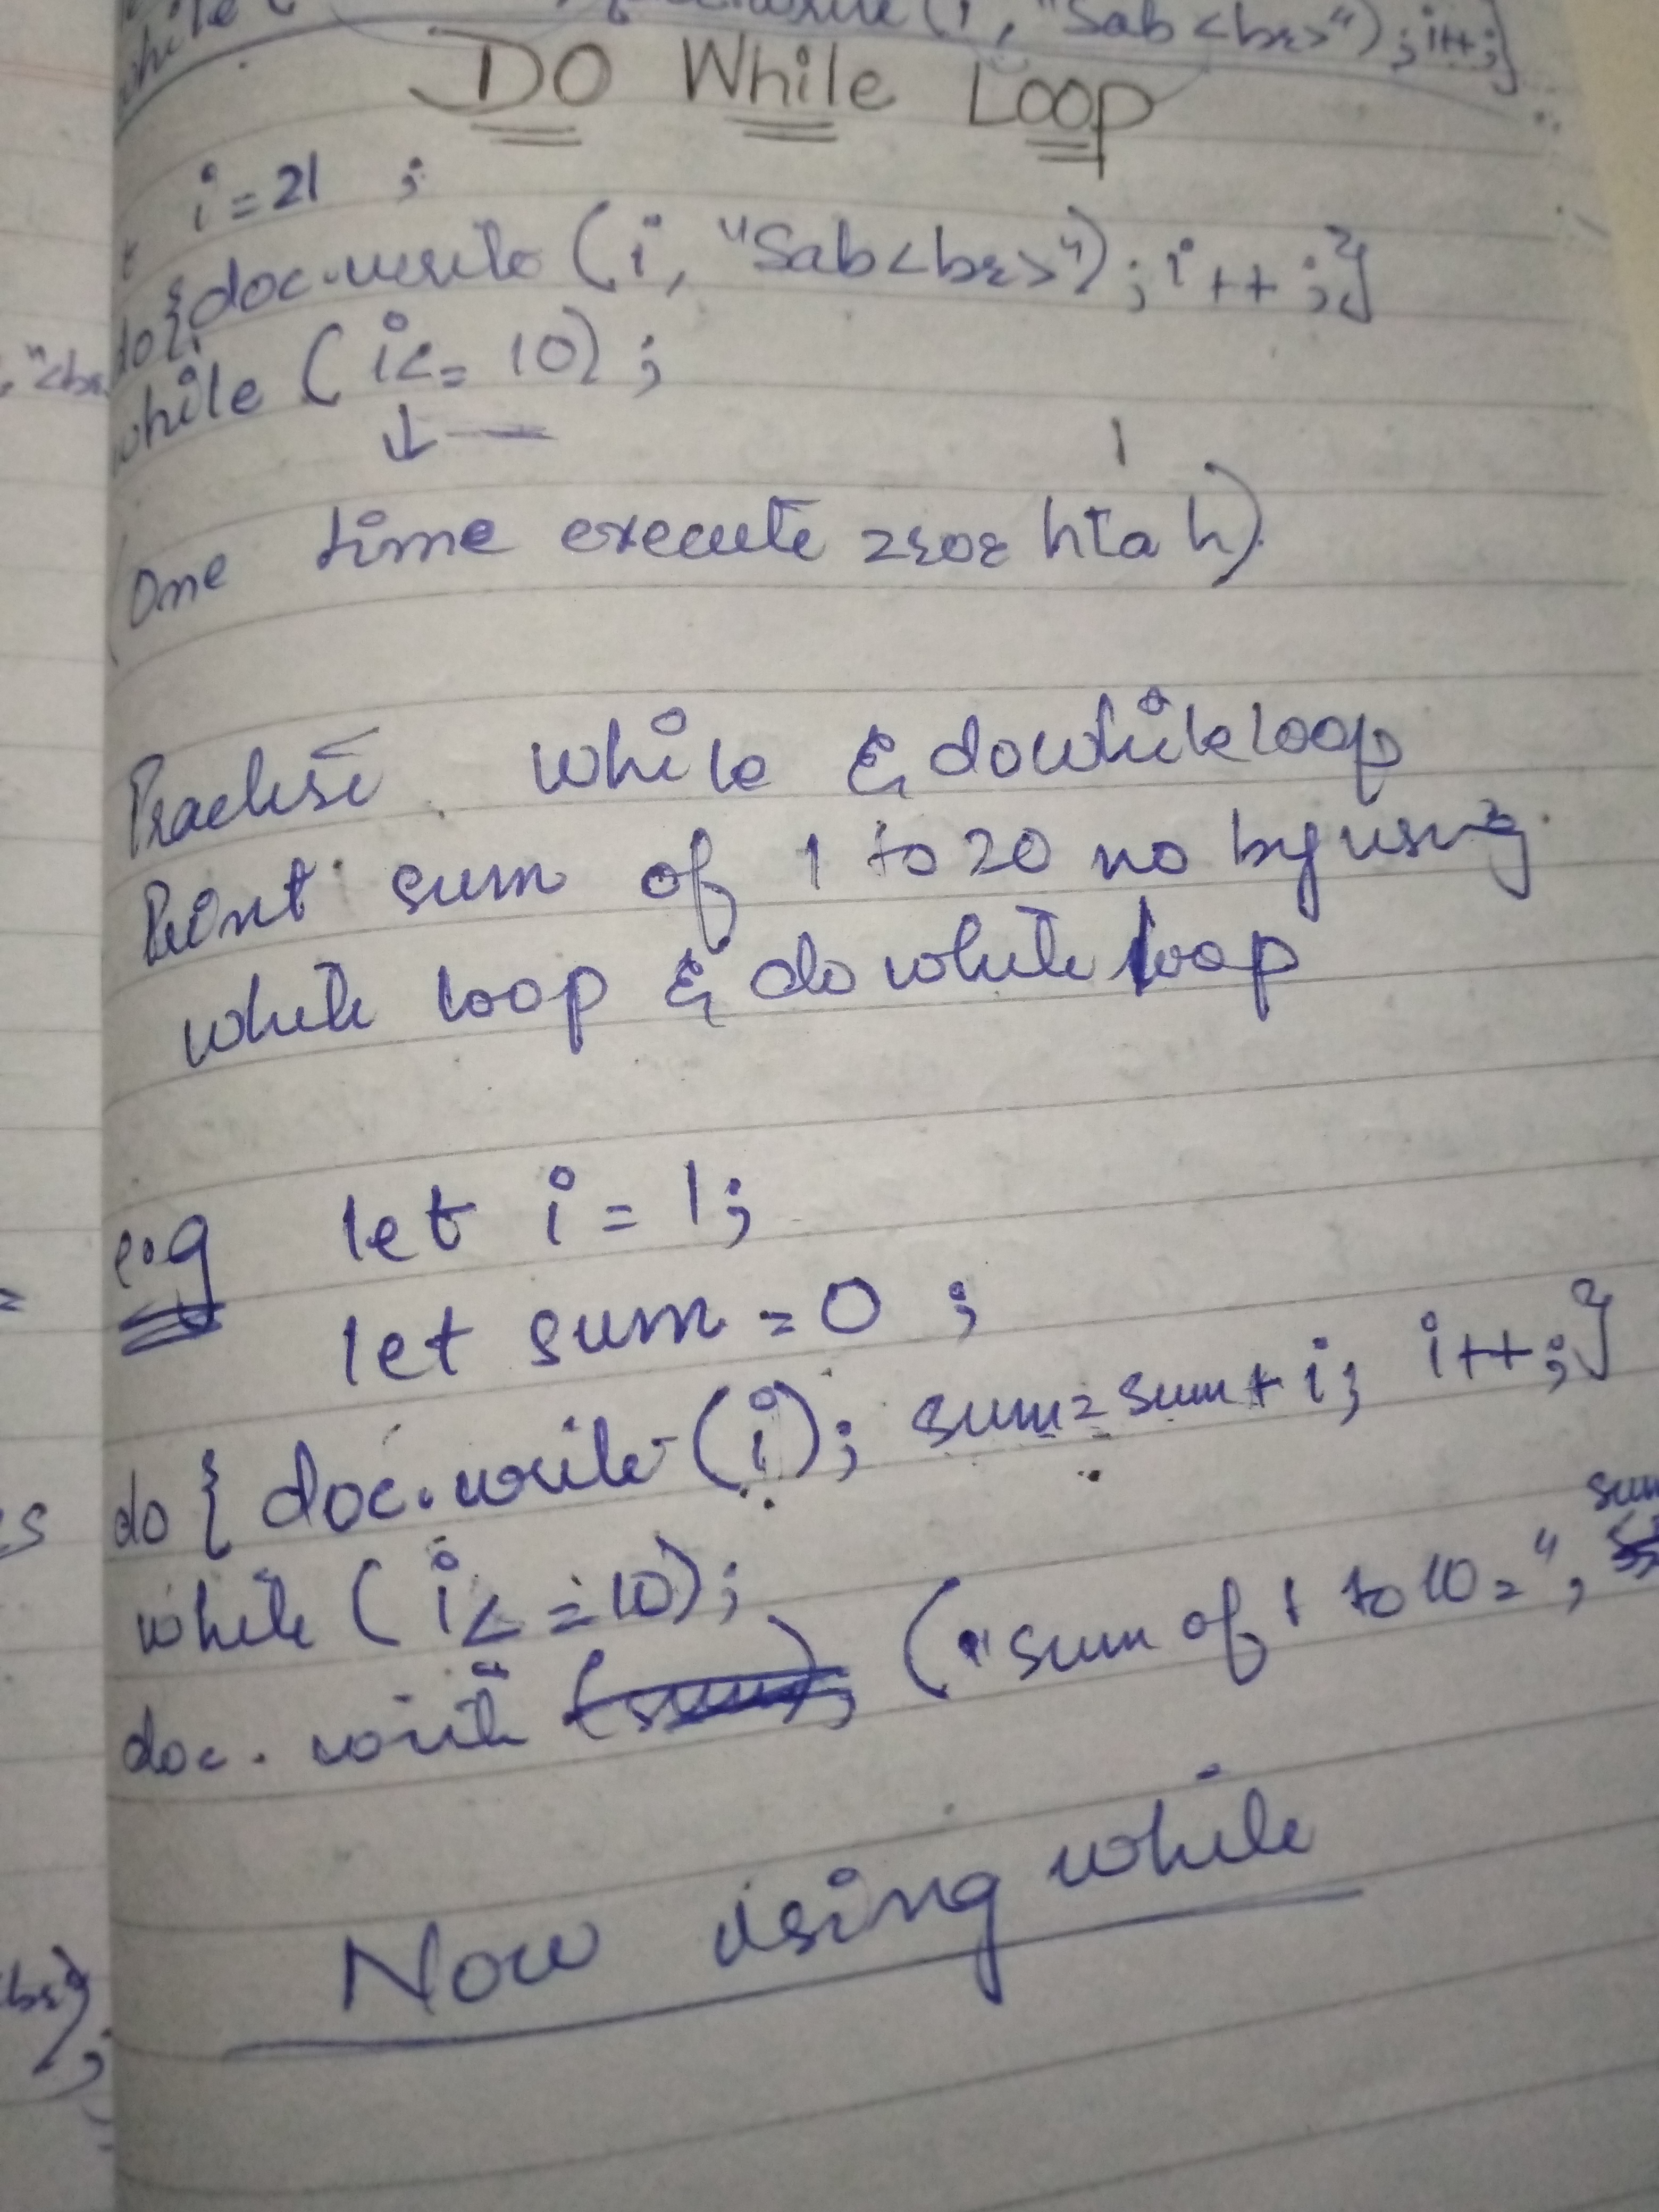 (i, "Sab<br>");i++;}
DO While Loop
i=21 ;
do{doc.write (i, "Sab<br>");i++;}
while (i<= 10);
(One time execute zror htah)
Practise while & dowhile loop
Print sum of 1 to 20 no by using
while loop & do while loop
e.g let i = 1;
let sum = 0 ;
do { doc.write (i); sum=sum+i; i++;}
while (i<=10);
sum
doc. write ("sum of 1 to 10=",
Now using while